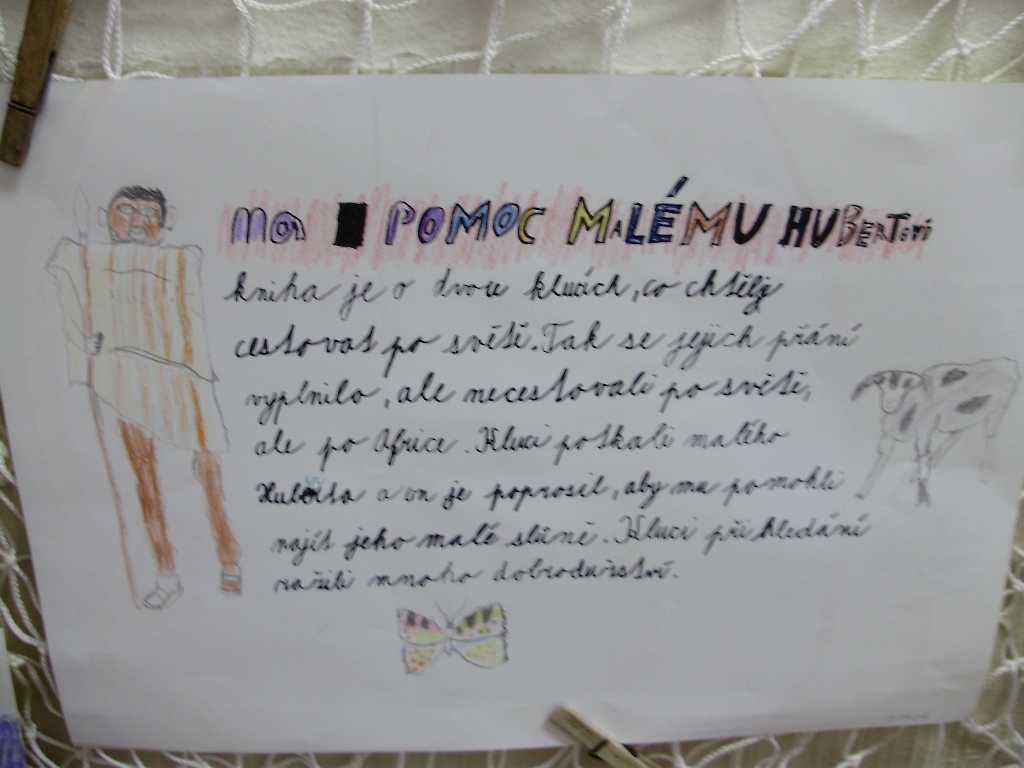 na POMOC MALÉMU HUBERTOVI
kniha je o dvou kluách, co chtěly
cestovat po světě. Tak se jejich přání
vyplnilo, ale necestovali po světě,
ale po Africe. Kluci potkali malého
Huberta a on je poprosil, aby mu pomohli
najít jeho malé slůně. Kluci při hledání
zažili mnoho dobrodužství.